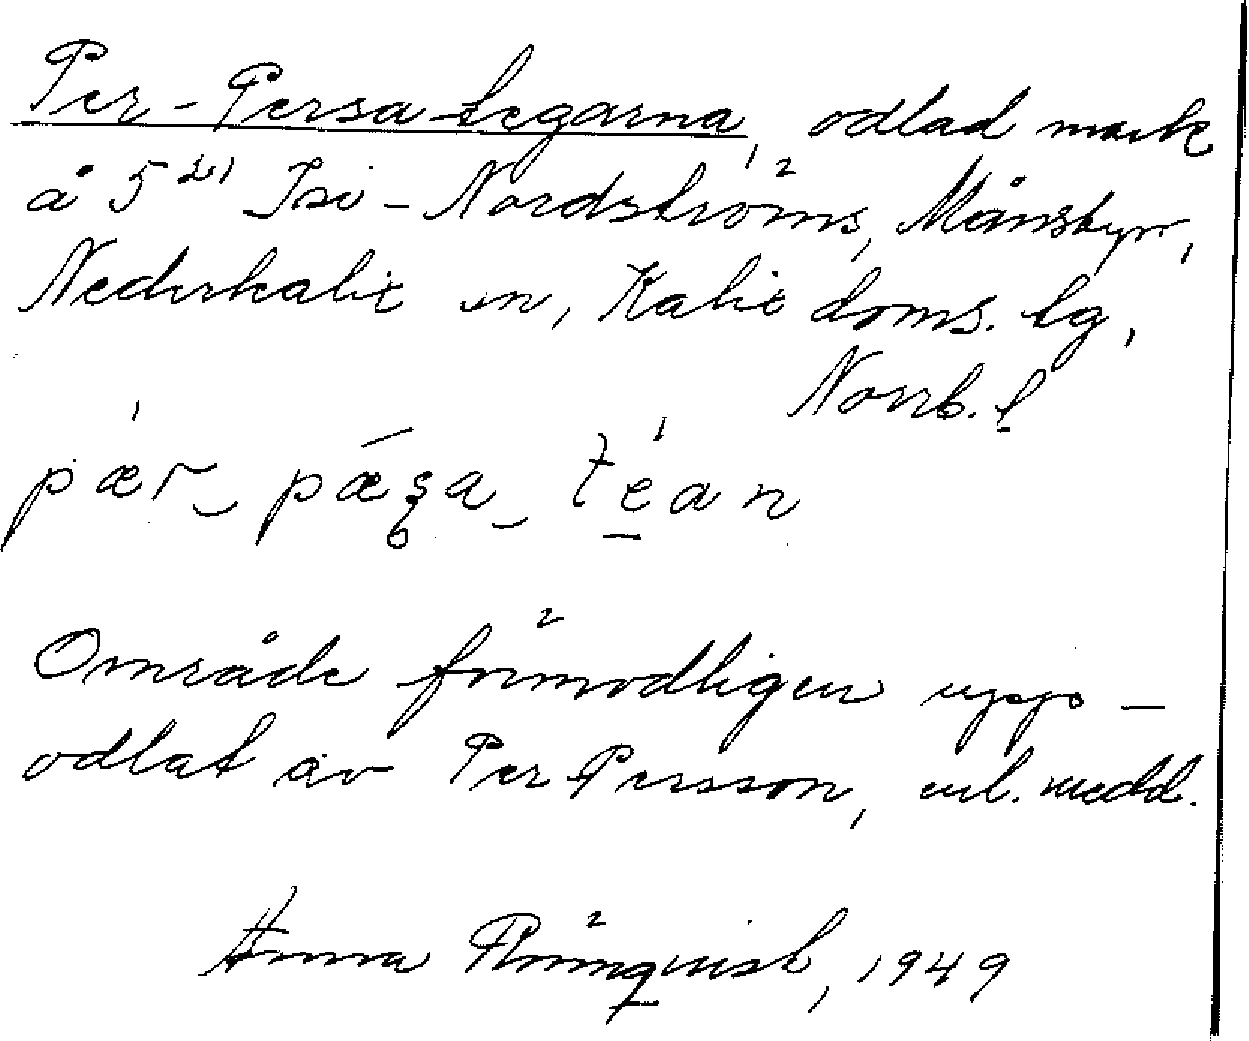 Per-Persa-tegarna, odlad mark
å 5²¹ Isi-Nordströms, Månsbyn,
Nederkalix sn, Kalix doms. lg,
Norrb. l
pær‿ pæʂa‿ tean
Område förmodligen upp-
odlat av Per Persson, enl. medd.
Anna 1949